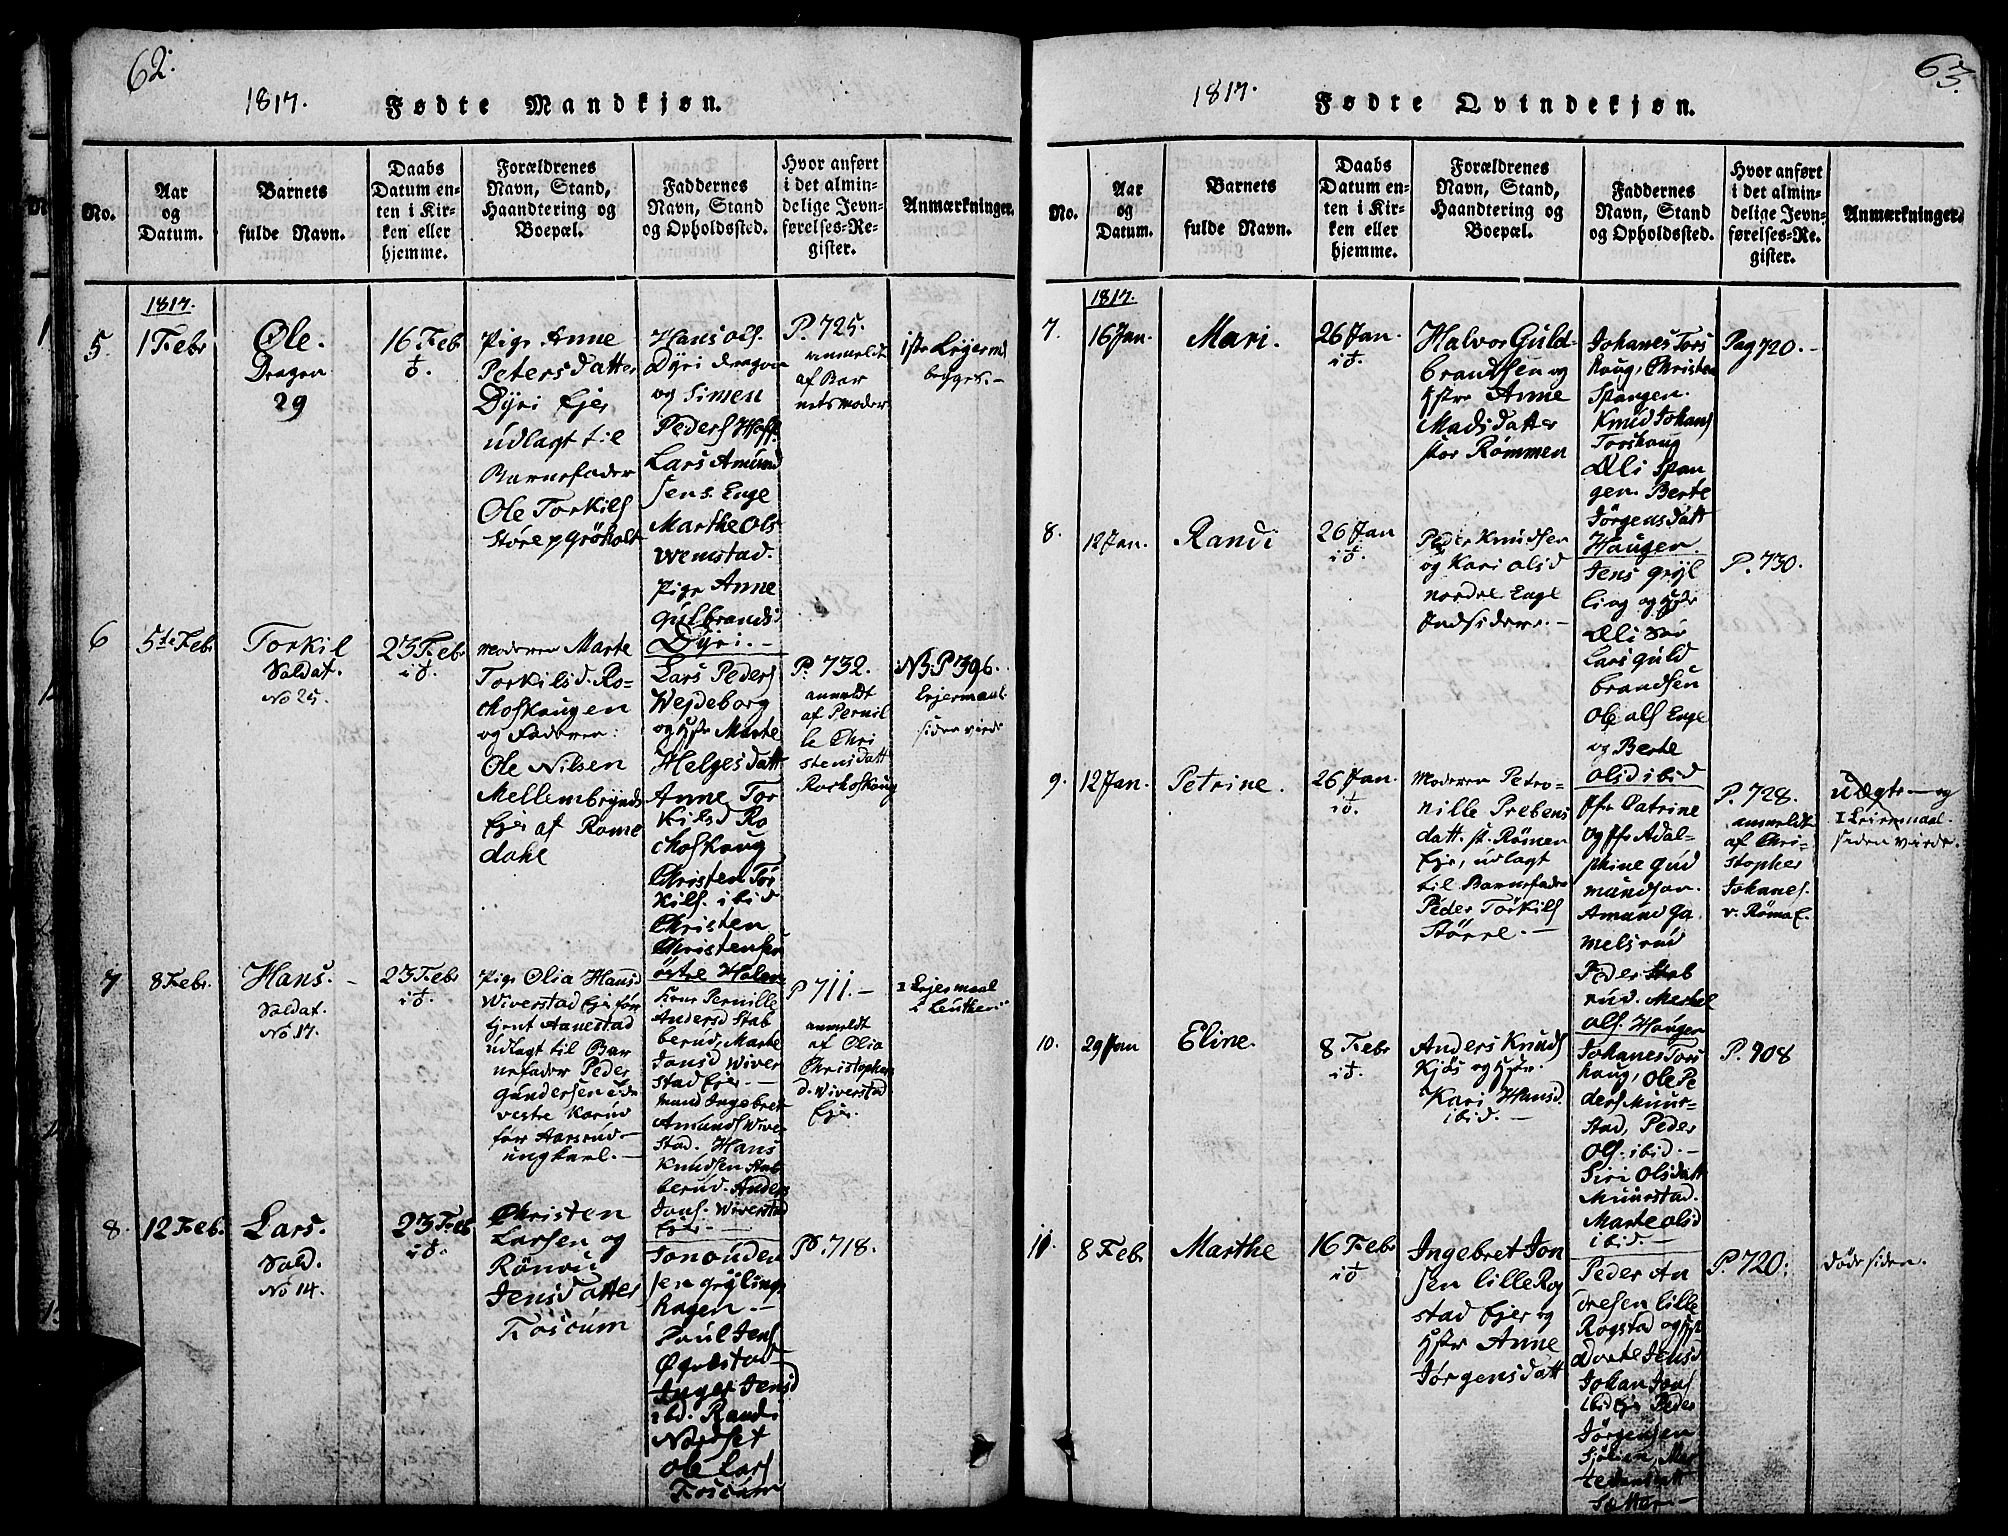 62.
1817.
Fødte Mandkjøn.
No.
Aar
og
Datum.
Barnets
fulde Navn.
Daabs
Datum en-
ten i Kir-
ken eller
hjemme.
Forældrenes
Navn, Stand,
Haandtering og
Boepæl.
Faddernes
Navn, Stand
og Opholdssted.
Hvor anført
i det almin-
delige Jevn-
førelses-Re-
gister.
Anmærkninger.
1817.
5.
1 Febr
Ole.
Dragon
29
16 Feb
Pige Anne
Petersdatter
Dÿri Ejer
udlagt til
Barnefader
Ole Torkils
Større p Grøholt
Hans Ols
Dÿri dragon
og Simen
Peders Hoff
Lars Amund
sens. Enge
Marthe Ols
Wemstad.
Pige Anne
Gulbrandsd
Dÿri. —
P. 725.
anmeldt
af Bar
nets moder
1ste Lejerm
begges. —
6
5te Feb
Torkil
Soldat.
No 25.
23 Feb
i K.
Moderen Marte
Torkilsd. Ro-
choshougen
og Faderen:
Ole Nilsen
Mellembÿnds
Ejer af Rome
dahl
Lars Peders
Wejdeborg
og Hstr Marte
Helgesdatt
Anne Tor
kilsd Ro
choshoug
Christen Tor
kils. ibid
Christen
Christensen
østre Holen
P. 732.
anmeldt
af Pernil
le Chri
stensdatt
Rochoshoug
NB. P 396.
Lejermaal
siden virde
7
8 Feb.
Hans. —
Soldat.
No 17.
23 Feb
Pige Olia Hansd
Wiverstad Ejer før
tjent Aanestad
udlagt til Bar
nefader Peder
Gundersen
vestre Korud
før Aasrud —
ungkarl. —
Kone Pernille
Andersd Stab
berud, Marte
Jansd Wiver
stad Ejer —
mand Ingebret
Amunds Wive
stad. Hans
Knudsen Stab
berud. Anders
Jons. Wiverstad
Ejer —
P 711. —
anmeldt
af Olia
Christophers
d. Wiverstad
Ejer.
1 Lejermaal
8.
12 Feb.
Lars.
Sold.
No 14.
23 Feb
Christen
Larsen og
Rönou
Jensdatter
Foscum
Jon ouden
sen Grÿling
hagen —
Poul Jens
Øgaestad
Inger Jensd
ibd. Randi
Nordset
Ole Lars
Foscum
P. 718.
63.
1817.
Fødte Qvindekjøn.
No.
Aar
og
Datum.
Barnets
fulde Navn.
Daabs
Datum en-
ten i Kir-
ken eller
hjemme.
Forældrenes
Navn, Stand,
Haandtering og
Boepæl.
Faddernes
Navn, Stand
og Opholdssted.
Hvor anført
i det almin-
delige Jevn-
førelses-Re-
gister.
Anmærkninger.
1817.
7.
16 Jan.
Mari.
26 Jan.
Halvor Guld-
brandsen og
Hstre Anne
Madsdatter
stor Rømmen
Johanes Tors
houg, Christen
Spangen.
Knud Johans
Torshoug
Oli Span
gen. Berte
Jörgensdatt
Hougen.
Pag 720. —
8.
12 Jan.
Randi
26 Jan
Peder Knudsen
og Kari Olsd
nordre Enge
Indsidere. —
Jens Grÿl
ling og Hstr
Oli
Lars Guld
brandsen
Ole Ols Enge
og Berte
Olsd ibid
P. 730.
9.
12 Jan.
Petrine.
26 Jan.
Moderen Petro-
nille Prebens
datt. st. Römen
Ejer, udlagt
til Barnefader
Peder Torkils
Större. —
Catrine
og Adal-
phine Gud
mundson.
Amund Ga
melsrud
Peder Stab
rud. Mickel
Ols. Hougen
P. 728.
anmeldt
af Chri-
stopher
Johanes
v. Röma E.
uægte — og
1 Lejermaal.
siden virde.
10.
29 Jan
Eline.
8 Feb
Anders Knuds
Kjös og Hstr.
Kari Hansd.
ibid. —
Johanes Tors
houg, Ole Pe
ders Muur-
stad, Peder
Ols. ibid. —
Siri Olsdatt
Muurstad.
Marte Olsd
ibid. —
P. 908
11.
8 Feb
Marthe
16 Feb
Ingebret Jon
sen lille Rog
stad Ejer og
Hstr Anne
Jørgensdatt
Peder An
dresen lille
Rogstad og Hstr
Dorte Jensd
Johan Jons
ibid Ejer Peder
Jørgensen
P. 720:
døde siden.